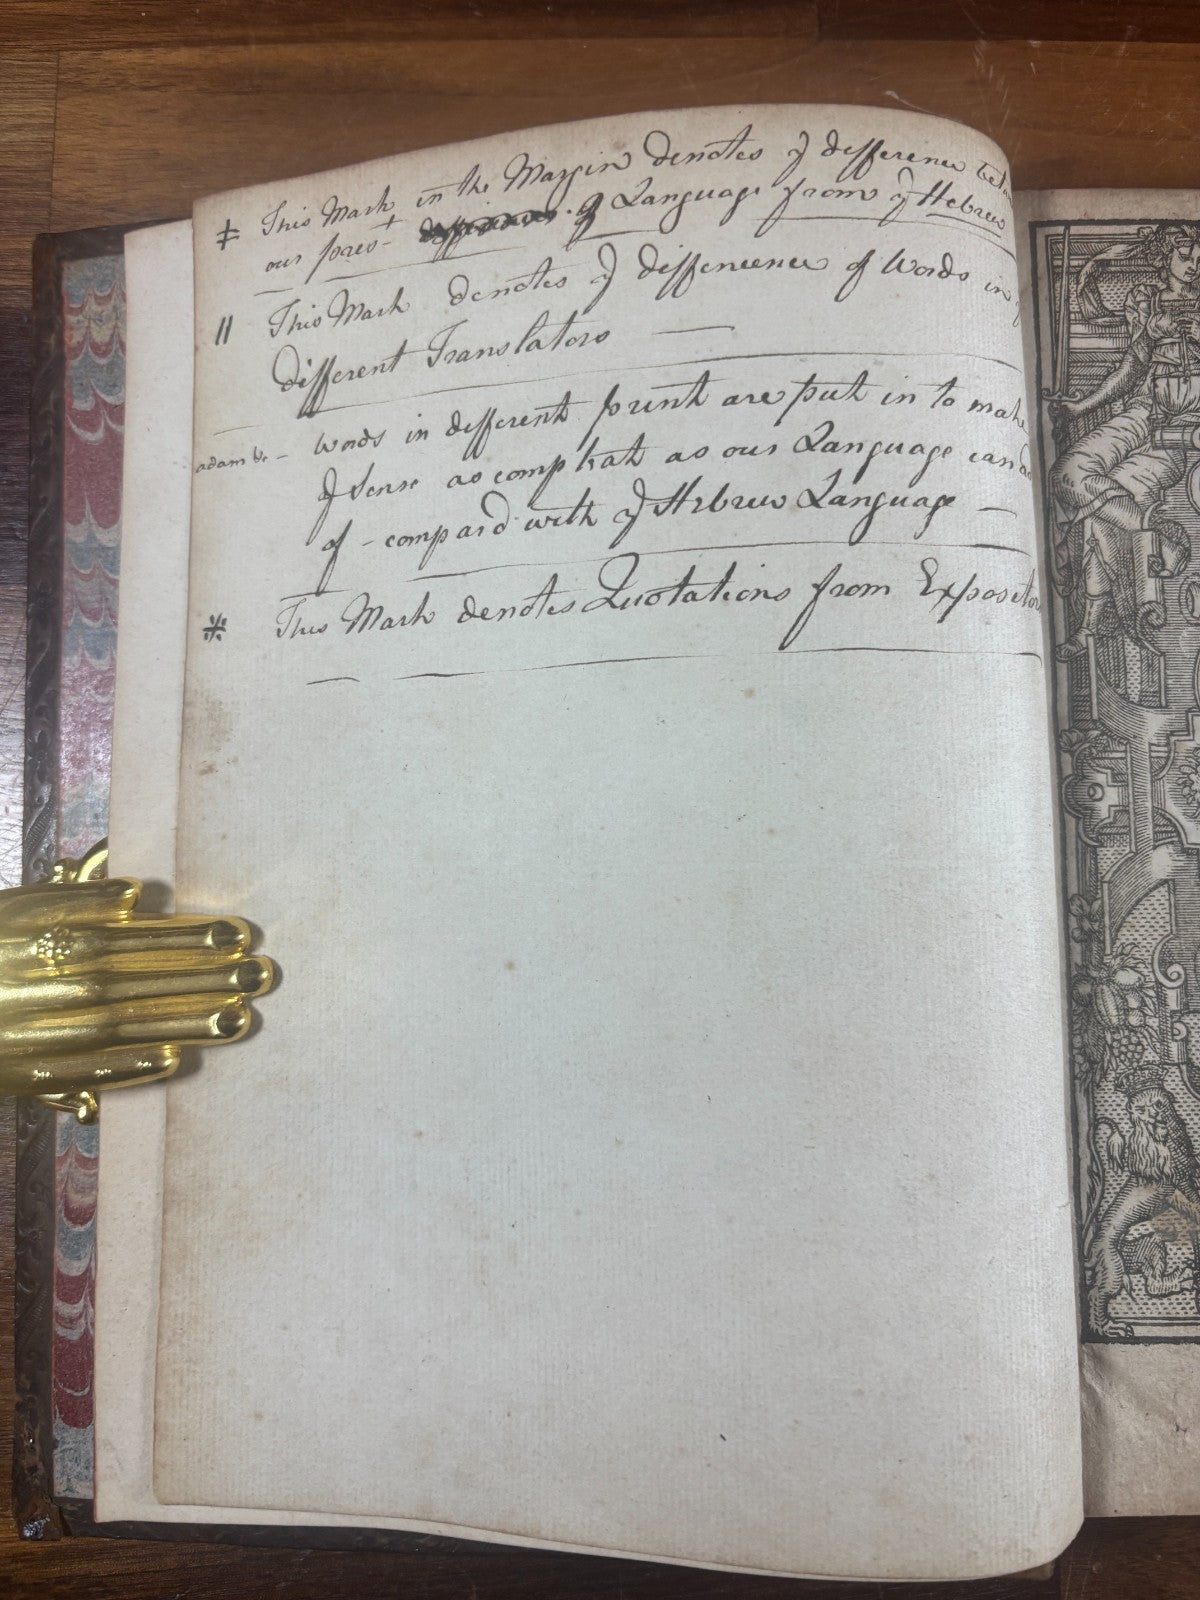 ‡ This Mark in the Margin denotes ẙ difference betw
our pres-ᵗ ẙ Language from ẙ Hebrew
|| This Mark denotes ẙ differenence of Words in ẙ
different Translators —
adam &c - words in different print are put in to make
ẙ sense as compleat as our Language can
of - compard with ẙ Hebrew Language —
※ This Mark denotes Quotations from Expositor